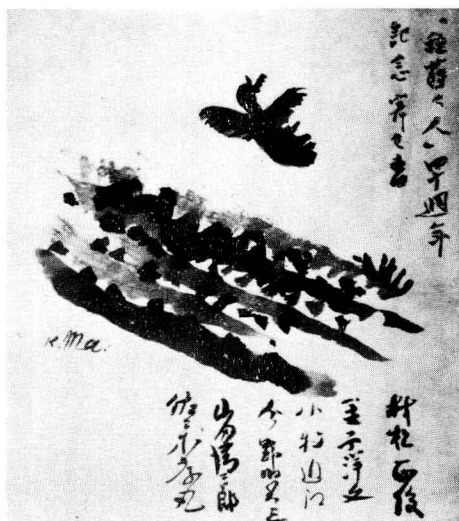 「種蒔く人」四十週年
記念寄せ書
K. Ma.
村松正俊
金子洋文
小牧近江
今野賢三
佐々木孝丸